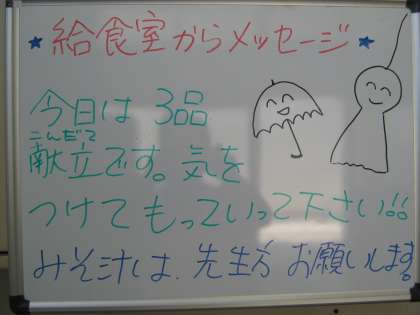 ★給食室からメッセージ★
今日は 3品
こんだて
献立です。気を
つけてもっていって下さい!!
みそ汁は、先生方 お願いします。